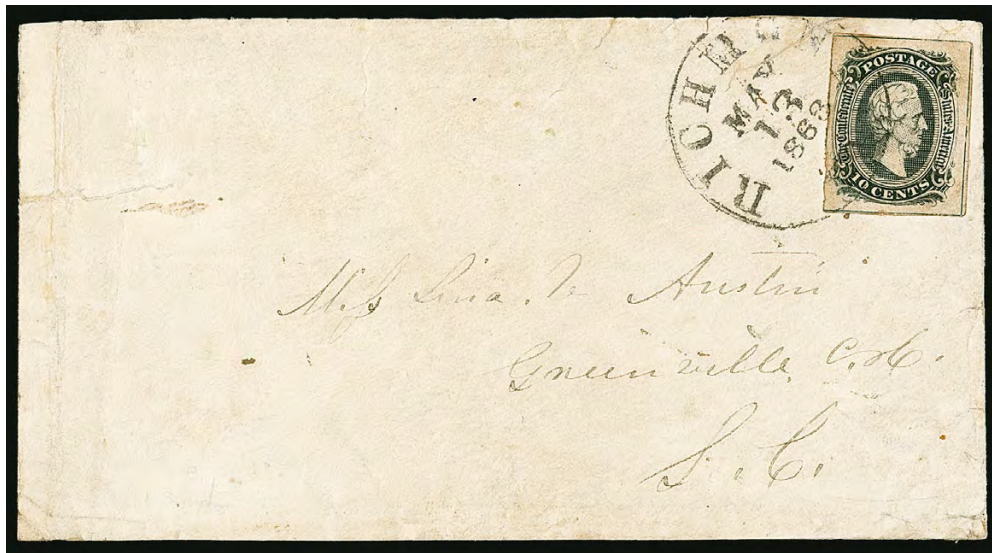 RICHM
MAY
13
1863
POSTAGE
The Confederate States of America
10 CENTS
Miss Lina Austin
Greenville C.H.
S.C.